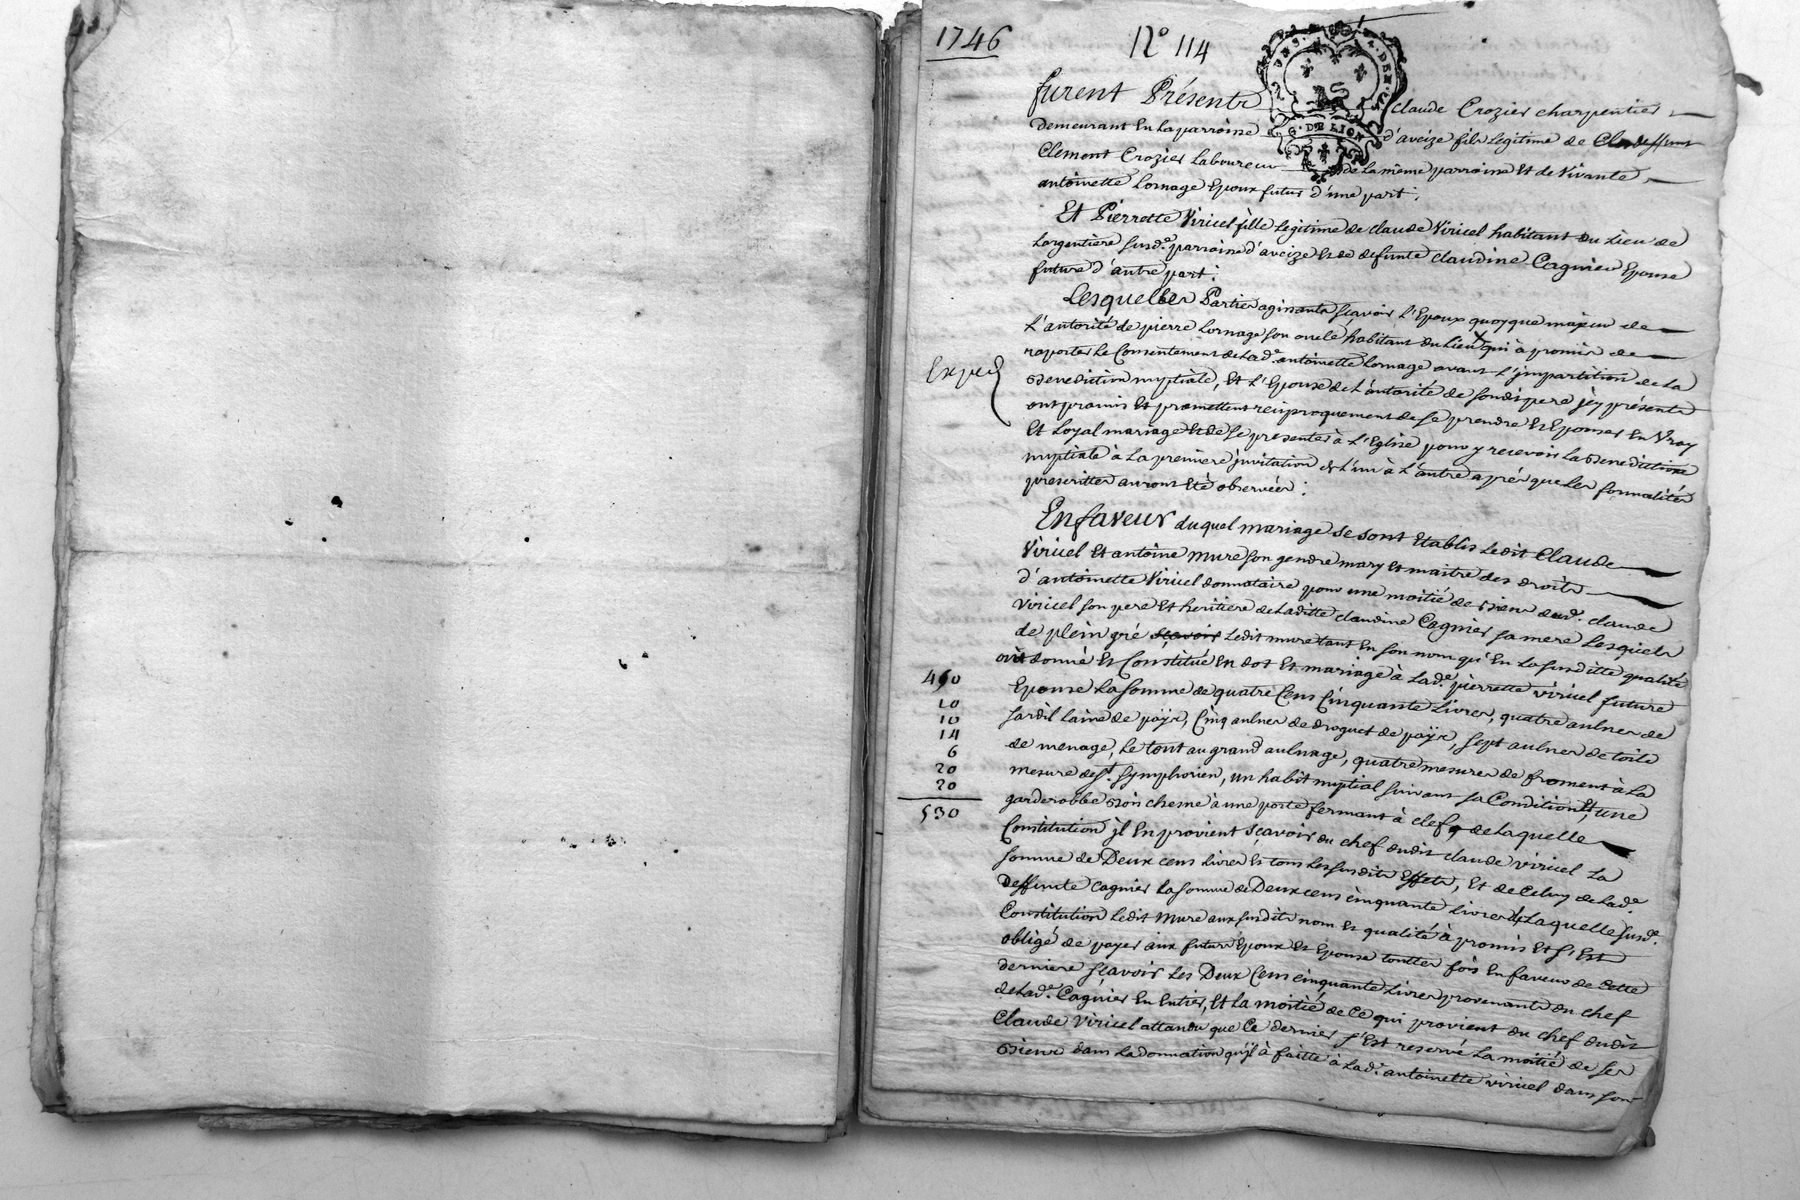 1746
N° 114
G. DE LION
furent Présents Claude Crozier charpentier
demeurant En la parroisse d'aveize fils Legitime de deffunt
Clement Crozier Laboureur de la même parroisse Et de Vivante
antoinette Lornage Epoux futur d'une part ;
Et Pierrette Viricel fille Legitime de claude Viricel habitant du Lieu de
Largentiere susd.e parroisse d'aveize Et de defunte claudine Cagnieu Epouse
future d'autre part ;
Lesquelles Parties agissants sçavoir L'Epoux quoyque majeur de
L'autorité de pierre Lornage son oncle habitant du Lieu qui à promis de
raporter Le Consentement de Lad.e antoinette Lornage avant L'jmpartition de La
Expedi
Benediction nuptiale, Et L'Epouse de L'autorité de sondit pere jcy présents
ont promis Et promettent reciproquement de se prendre Et Epouser En Vray
Et Loyal mariage Et de se presenter à L'Eglise pour y recevoir La Benediction
nuptiale à La premiere jnvitation de L'un à L'autre après que Les formalités
prescrittes auront Eté observées ;
En faveur duquel mariage se sont Etablis Ledit Claude
Viricel Et antoine Mure son gendre mary Et maitre des droits
d'antoinette Viricel donnataire pour une moitié de Biens dud.t claude
Viricel son pere Et heritiere de Laditte claudine Cagnier sa mere Lesquels
de plein gré sçavoir Ledit mure tant En son nom qu'En La susditte qualité
ont donné Et Constitué En dot Et mariage à Lad.e pierrette viricel future
450 Epouse La somme de quatre Cens Cinquante Livres, quatre aulnes de
10
10 sardit Laine de païs, Cinq aulnes de droguet de païs, sept aulnes de toile
14
6 de menage, Le tout au grand aulnage, quatre mesures de froment à La
20 mesure de St. symphorien, un habit nuptial suivant sa Condition, Et une
20
530 garderobbe Bois chesne à une porte fermant à clef, de Laquelle
Constitution jl En provient sçavoir du chef dudit claude viricel La
somme de Deux cens Livres Et tous Les susdits Effets, Et de Celuy de Lad.e
deffunte Cagnier La somme de Deux cens cinquante Livres Laquelle susd.e
Constitution Ledit Mure aux susdits nom Et qualité à promis Et s'Est
obligé de payer aux futurs Epoux Et Epouse touttes fois En faveur de Cette
derniere sçavoir Les Deux Cens cinquante Livres provenants du chef
de Lad.e Cagnier En Entier, Et La moitié de Ce qui provient du chef dudit
Claude Viricel attandu que Ce dernier s'Est reservé La moitié de ses
Biens dans La donnation qu'jl à faitte à Lad.e antoinette viricel dans son